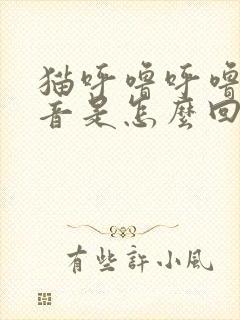 猫呼噜呼噜
音是怎麼回
有些許小风